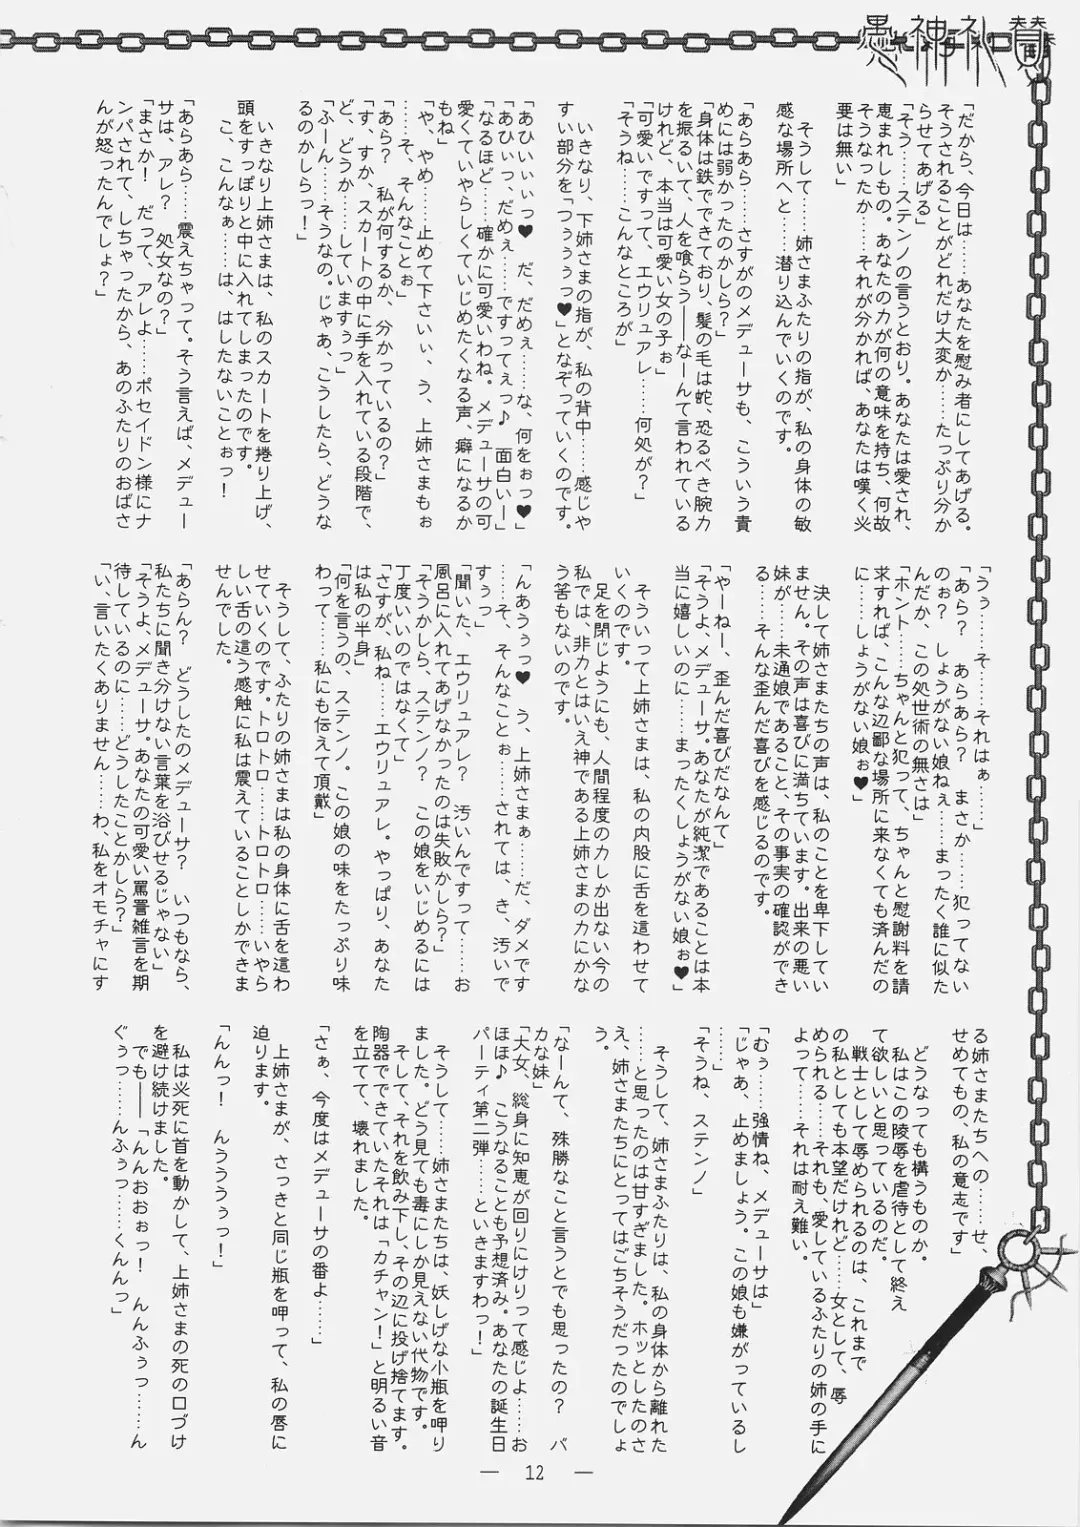 愚神礼賛
「だから、今日は……あなたを慰み者にしてあげる。
そうされることがどれだけ大変か……たっぷり分か
らせてあげる」
「そう……ステンノの言うとおり。あなたは愛され、
恵まれしもの。あなたの力が何の意味を持ち、何故
そうなったか……それが分かれば、あなたは嘆く必
要は無い」
そうして……姉さまふたりの指が、私の身体の敏
感な場所へと……潜り込んでいくのです。
「あらあら……さすがのメデューサも、こういう責
めには弱かったのかしら？」
「身体は鉄でできており、髪の毛は蛇、恐るべき腕力
を振るいて、人を喰らう――なーんて言われている
けれど、本当は可愛い女の子ぉ」
「可愛いですって、エウリュアレ……何処が？」
「そうね……こんなところが」
いきなり、下姉さまの指が、私の背中……感じや
すい部分を「つぅぅぅっ♥」となぞっていくのです。
「あひぃぃぃっ♥　だ、だめぇ……な、何をぉっ♥」
「あひぃっ、だめぇ……ですってぇっ♪　面白いー」
「なるほど……確かに可愛いわね。メデューサの可
愛くていやらしくていじめたくなる声、癖になるか
もね」
「や、やめ……止めて下さいぃ、う、上姉さまもぉ
……そ、そんなことぉ」
「あら？　私が何するか、分かっているの？」
「す、すか、スカートの中に手を入れている段階で、
ど、どうか……していますぅっ」
「ふーん……そうなの。じゃあ、こうしたら、どうな
るのかしらっ！」
いきなり上姉さまは、私のスカートを捲り上げ、
頭をすっぽりと中に入れてしまったのです。
こ、こんなぁ……は、はしたないことぉっ！
「あらあら……震えちゃって。そう言えば、メデュー
サは、アレ？　処女なの？」
「まさか！　だって、アレよ……ポセイドン様にナ
ンパされて、しちゃったから、あのふたりのおばさ
んが怒ったんでしょ？」
「うぅ……そ……それはぁ……」
「あら？　あらあら？　まさか……犯ってない
のぉ？　しょうがない娘ねぇ……まったく誰に似た
んだか、この処世術の無さは」
「ホント……ちゃんと犯って、ちゃんと慰謝料を請
求すれば、こんな辺鄙な場所に来なくても済んだの
に……しょうがない娘ぉ♥」
決して姉さまたちの声は、私のことを卑下してい
ません。その声は喜びに満ちています。出来の悪い
妹が……未通娘であること、その事実の確認ができ
る……そんな歪んだ喜びを感じるのです。
「やーねー、歪んだ喜びだなんて」
「そうよ、メデューサ。あなたが純潔であることは本
当に嬉しいのに……まったくしょうがない娘ぉ♥」
そういって上姉さまは、私の内股に舌を這わせて
いくのです。
足を閉じようにも、人間程度の力しか出ない今の
私では、非力とはいえ神である上姉さまの力にかな
う筈もないのです。
「んあうぅっ♥　う、上姉さまぁ……だ、ダメです
……そ、そんなことぉ……されては、き、汚いで
すぅっ」
「聞いた、エウリュアレ？　汚いんですって……お
風呂に入れてあげなかったのは失敗かしら？」
「そうかしら、ステンノ？　この娘をいじめるには
丁度いいのではなくて」
「さすが、私ね……エウリュアレ。やっぱり、あなた
は私の半身」
「何を言うの、ステンノ。この娘の味をたっぷり味
わって……私にも伝えて頂戴」
そうして、ふたりの姉さまは私の身体に舌を這わ
せていくのです。トロトロ……トロトロ……いやら
しい舌の這う感触に私は震えていることしかできま
せんでした。
「あらん？　どうしたのメデューサ？　いつもなら、
私たちに聞き分けない言葉を浴びせるじゃない」
「そうよ、メデューサ。あなたの可愛い罵詈雑言を期
待しているのに……どうしたことかしら？」
「い、言いたくありません……わ、私をオモチャにす
る姉さまたちへの……せ、
せめてもの、私の意志です」
どうなっても構うものか。
私はこの陵辱を虐待として終え
て欲しいと思っているのだ。
戦士として辱められるのは、これまで
の私としても本望だけれど……女として、辱
められる……それも、愛しているふたりの姉の手に
よって……それは耐え難い。
「むぅ……強情ね、メデューサは」
「じゃあ、止めましょう。この娘も嫌がっているし
……」
「そうね、ステンノ」
そうして、姉さまふたりは、私の身体から離れた
……と思ったのは甘すぎました。ホッとしたのさ
え、姉さまたちにとってはごちそうだったのでしょ
う。
「なーんて、殊勝なこと言うとでも思ったの？　バ
カな妹」
「大女、総身に知恵が回りにけりって感じよ……お
ほほ♪　こうなることも予想済み。あなたの誕生日
パーティ第二弾……といきますわっ！」
そうして……姉さまたちは、妖しげな小瓶を呷り
ました。どう見ても毒にしか見えない代物です。
そして、それを飲み下し、その辺に投げ捨てます。
陶器でできていたそれは「カチャン！」と明るい音
を立てて、壊れました。
「さぁ、今度はメデューサの番よ……」
上姉さまが、さっきと同じ瓶を呷って、私の唇に
迫ります。
「んんっ！　んううぅっ！」
私は必死に首を動かして、上姉さまの死の口づけ
を避け続けました。
でも――「んんおおぉっ！　んんふぅっ……ん
ぐぅっ……んふぅっ……くんんっ」
― 12 ―